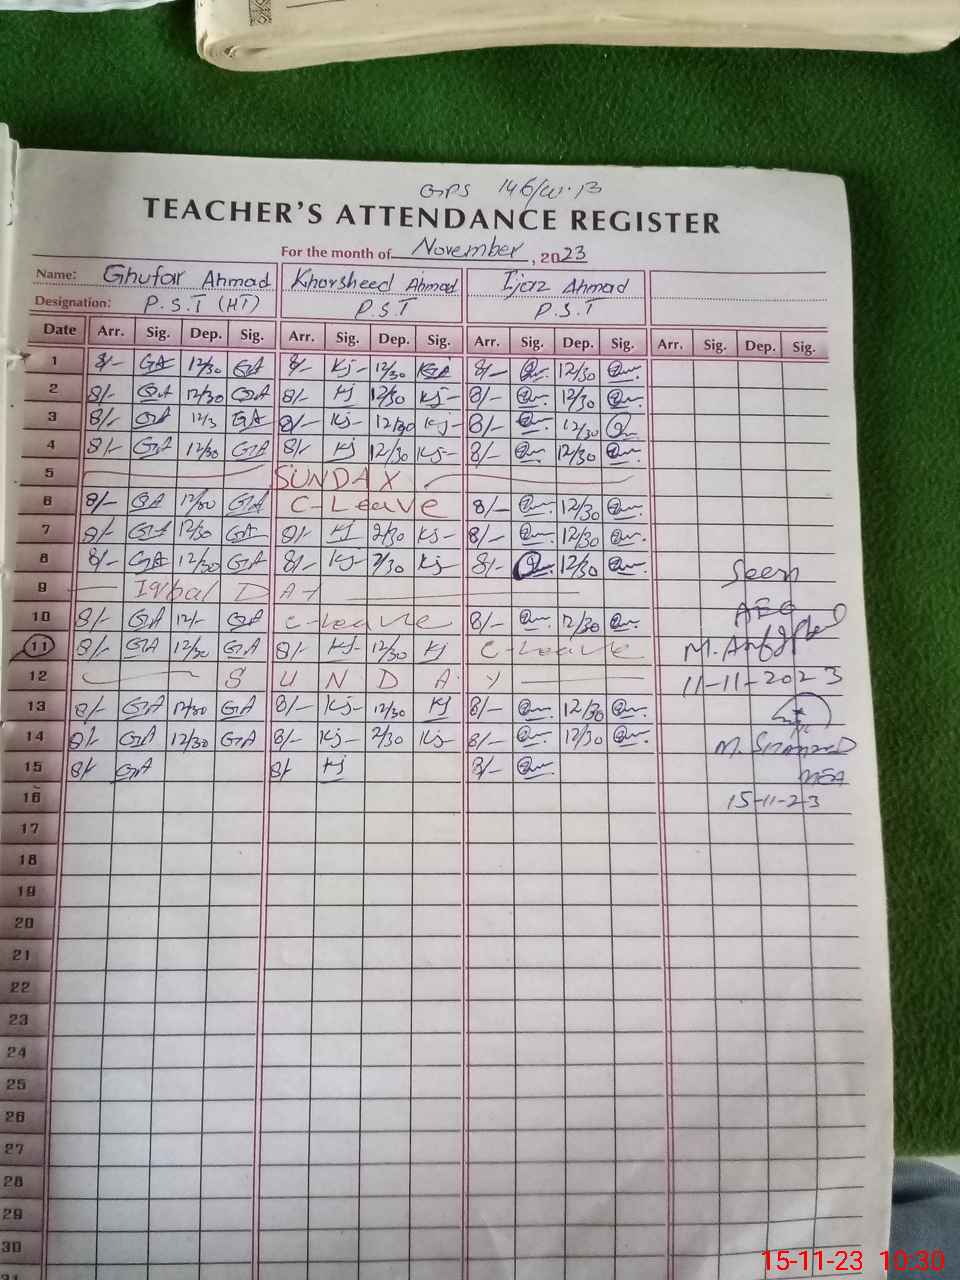 GPS 146/W.B
TEACHER'S ATTENDANCE REGISTER
For the month of November, 2023
Name: Ghufar Ahmad Khorsheed Ahmad Ijaz Ahmad
Designation: P.S.T (HT) P.S.T P.S.T
Date Arr. Sig. Dep. Sig. Arr. Sig. Dep. Sig. Arr. Sig. Dep. Sig. Arr. Sig. Dep. Sig.
1 8/- GA 12/30 GA 8/- Kj- 12/30 8/- 12/30
2 8/- GA 12/30 GA 8/- Kj 12/30 Kj- 8/- 12/30
3 8/- GA 12/3 GA 8/- Kj- 12/30 Kj- 8/- 12/30
4 8/- GA 12/30 GA 8/- Kj 12/30 Kj- 8/- 12/30
5 SUNDAY
6 8/- GA 12/30 GA C-Leave 8/- 12/30
7 8/- GA 12/30 GA 8/- Kj 2/30 Kj- 8/- 12/30
8 8/- GA 12/30 GA 8/- Kj- 2/30 Kj 8/- 12/30
Seen
9 Iqbal DAY
10 8/- GA 12/- GA C-Leave 8/- 12/30
AEO
11 8/- GA 12/30 GA 8/- Kj- 12/30 Kj C-Leave
12 SUNDAY
11-11-2023
13 8/- GA 12/30 GA 8/- Kj- 12/30 Kj 8/- 12/30
14 8/- GA 12/30 GA 8/- Kj- 2/30 Kj- 8/- 12/30
15 8/- GA 8/- Kj 8/-
MEA
16 15-11-23
17
18
19
20
21
22
23
24
25
26
27
28
29
30
31
15-11-23 10:30